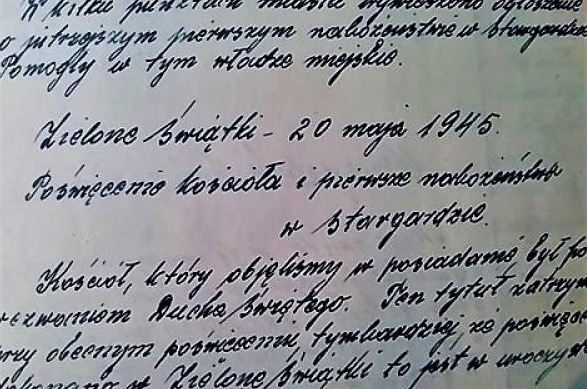 W kilku punktach miasta wywieszono ogłoszenie
o jutrzejszym pierwszym nabożeństwie w Stargardzie
Pomogły w tym władze miejskie.
Zielone Świątki - 20 maja 1945.
Poświęcenie kościoła i pierwsze nabożeństwo
w Stargardzie.
Kościół, który objęliśmy w posiadanie był po
wezwaniem Ducha Świętego. Ten tytuł zatrzym
przy obecnym poświęceniu, tymbardziej, że poświęce
dokonano w Zielone Świątki to jest w uroczyst